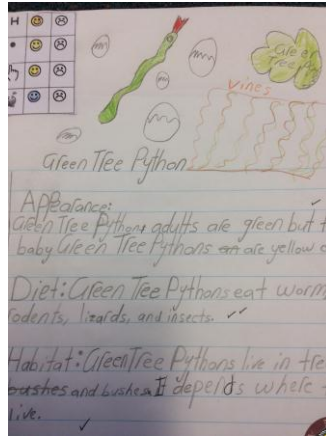 H
Green
Tree
vines
Green Tree Python
Appearance:
Green Tree Python adults are green but
baby Green Tree Pythons are yellow
Diet: Green Tree Pythons eat worm
rodents, lizards, and insects.
Habitat: Green Tree Pythons live in tre
bushes and bushes. It depends where
live.